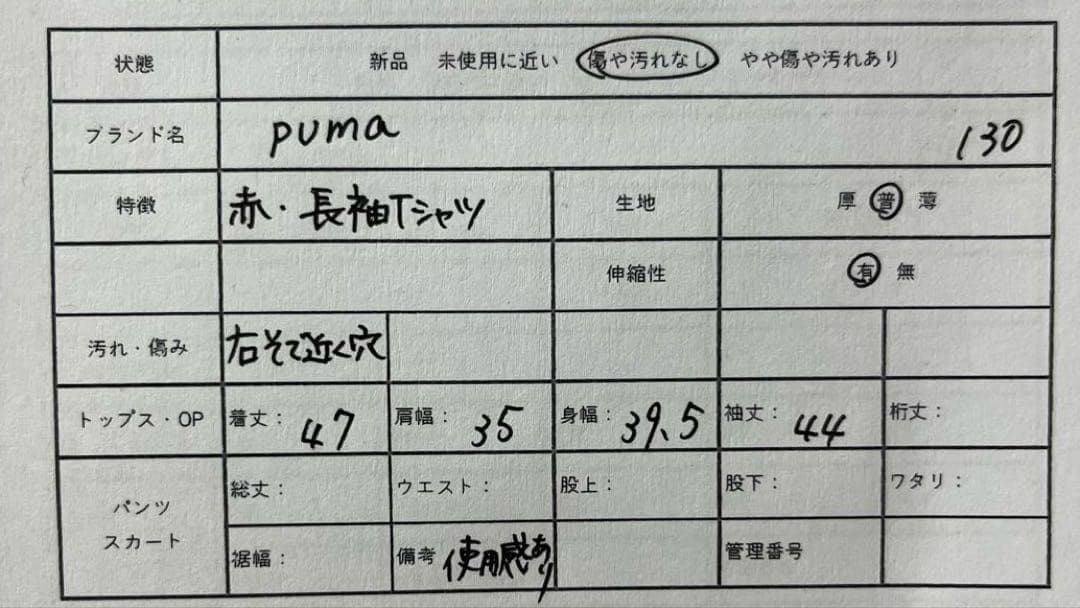 状態 新品 未使用に近い 傷や汚れなし やや傷や汚れあり
ブランド名 puma 130
特徴 赤・長袖Tシャツ 生地 厚 普 薄
伸縮性 有 無
汚れ・傷み 右そで近く穴
トップス・OP 着丈: 47 肩幅: 35 身幅: 39.5 袖丈: 44 裄丈:
パンツ スカート
総丈: ウエスト: 股上: 股下: ワタリ:
裾幅: 備考 使用感あり 管理番号